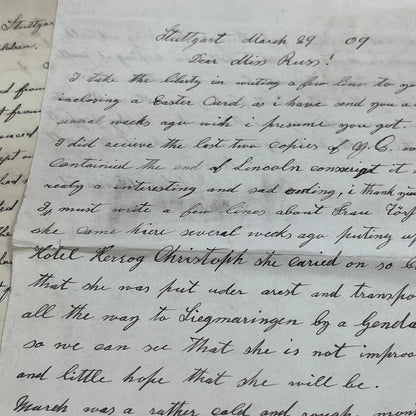 Stuttgart March 29 09
Dear Miss Russ!
I take the liberty in writing a few lines to yo
inclosing a Easter Card, as i have send you a
several weeks ago wich i presume you got.
I did acieve the last two copies of Y.C. w
Contained the end of Lincoln conscript it
realy a interesting and sad ending, i thank you
I must write a few lines about Frau
she came hiere several weeks ago puting up
Hotel Herzog Christoph she caried on so
that she was put uder arest and transpo
all the way to Siegmaringen by a Genda
so we can see that she is not improo
and little hope that she will be.
March was a rather cold and rough, mon